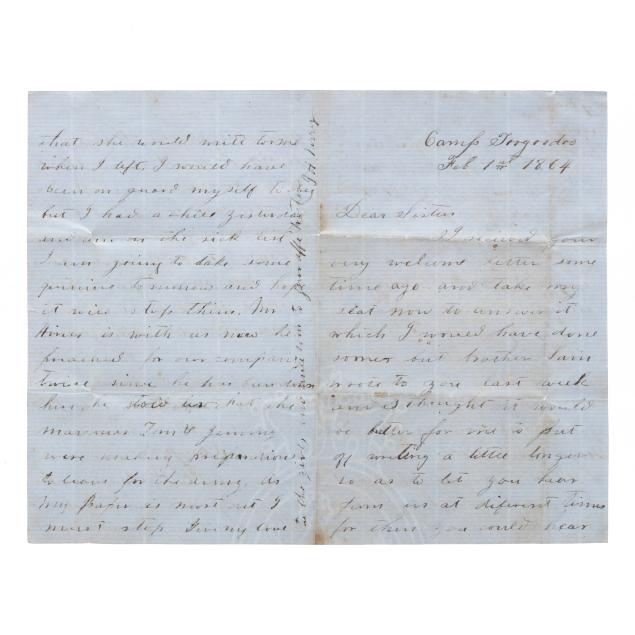 Camp
Feb 1st 1864
Dear Sister
I recieved your
very welcome letter some
time ago and take my
seat now to answer it
which I would have done
sooner but brother Sam
wrote to you last week
and I thought it would
be better for me to put
off writing a little longer
so as to let you hear
from us at diferent times
for then you could hear
that she would write to me
when I left, I would have
been on guard myself to day
but I had a chill yesterday
and am on the sick list
I am going to take some
tomorrow and hope
it will stop them. Mr
Hines is with us now he
preached for our company
twice since he has been down
here, he told us that she
Tom & Jimmy
were making preparations
to leave for the army. As
My paper is most out I
must stop Give my love
to the girls and